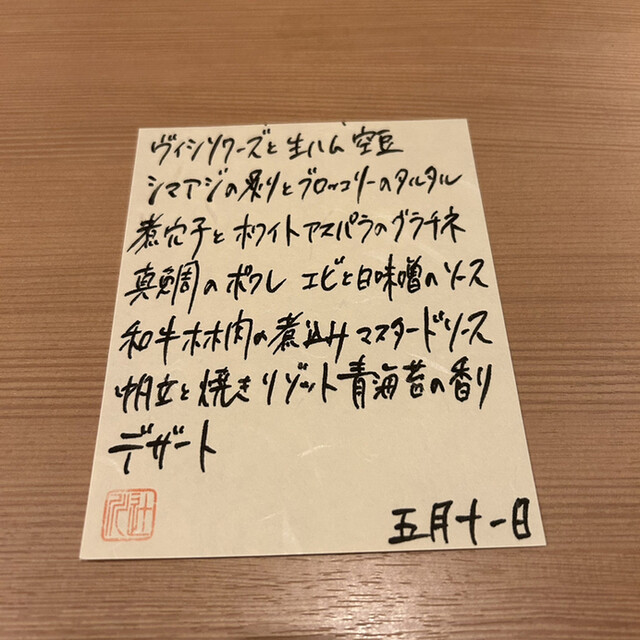 ヴィシソワーズと生ハム 空豆
シマアジの炙りとブロッコリーのタルタル
煮穴子とホワイトアスパラのグラチネ
真鯛のポワレ エビと白味噌のソース
和牛ホホ肉の煮込み マスタードソース
帆立と焼きリゾット 青海苔の香り
デザート
五月十一日